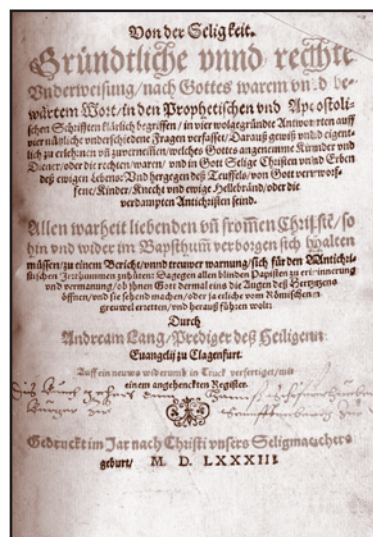 Von der Seligkeit.
Gründtliche vnnd rechte
Vnderweisung / nach Gottes warem vnd be-
wärtem Wort / in den Prophetischen vnd Apostoli-
schen Schrifften klärlich begriffen / in vier wolgegründte Antworten auff
vier nützliche vnderschiedene Fragen verfasset / Darauß gewiß vnnd eigent-
lich zu erlehrnen vñ zuvernemen / welches Gottes angenemme Kinnder vnd
Diener / oder die rechten / waren / vnd in Gott Selige Christen vnnd Erben
deß ewigen Lebens: Vnd hergegen deß Teuffels / von Gott verworf-
fene / Kinder / Knecht vnd ewige Hellebränd / oder die
verdampten Antichristen seind.
Allen warheit liebenden vñ frommen Christē / so
hin vnd wider im Bapsthumb verborgen sich halten
müssen / zu einem Bericht / vnnd treuwer warnung / sich für den Antichri-
stischen Irrthummen zuhüten: Dagegen allen blinden Papisten zu erinnerung
und vermanung / ob jhnen Gott dermal eins die Augen deß Hertzens
öffnen / vnd sie sehend machen / oder ja etliche vom Römischen
greuwel erretten / vnd herauß führen wolt:
Durch
Andream Lang / Prediger deß Heiligenn
Euangelij zu Clagenfurt.
Auff ein neuws widerumb in Truck verfertiget / mit
einem angehenckten Register.
Gedruckt im Jar nach Christi vnsers Seligmachers
geburt / M. D. LXXXIII.